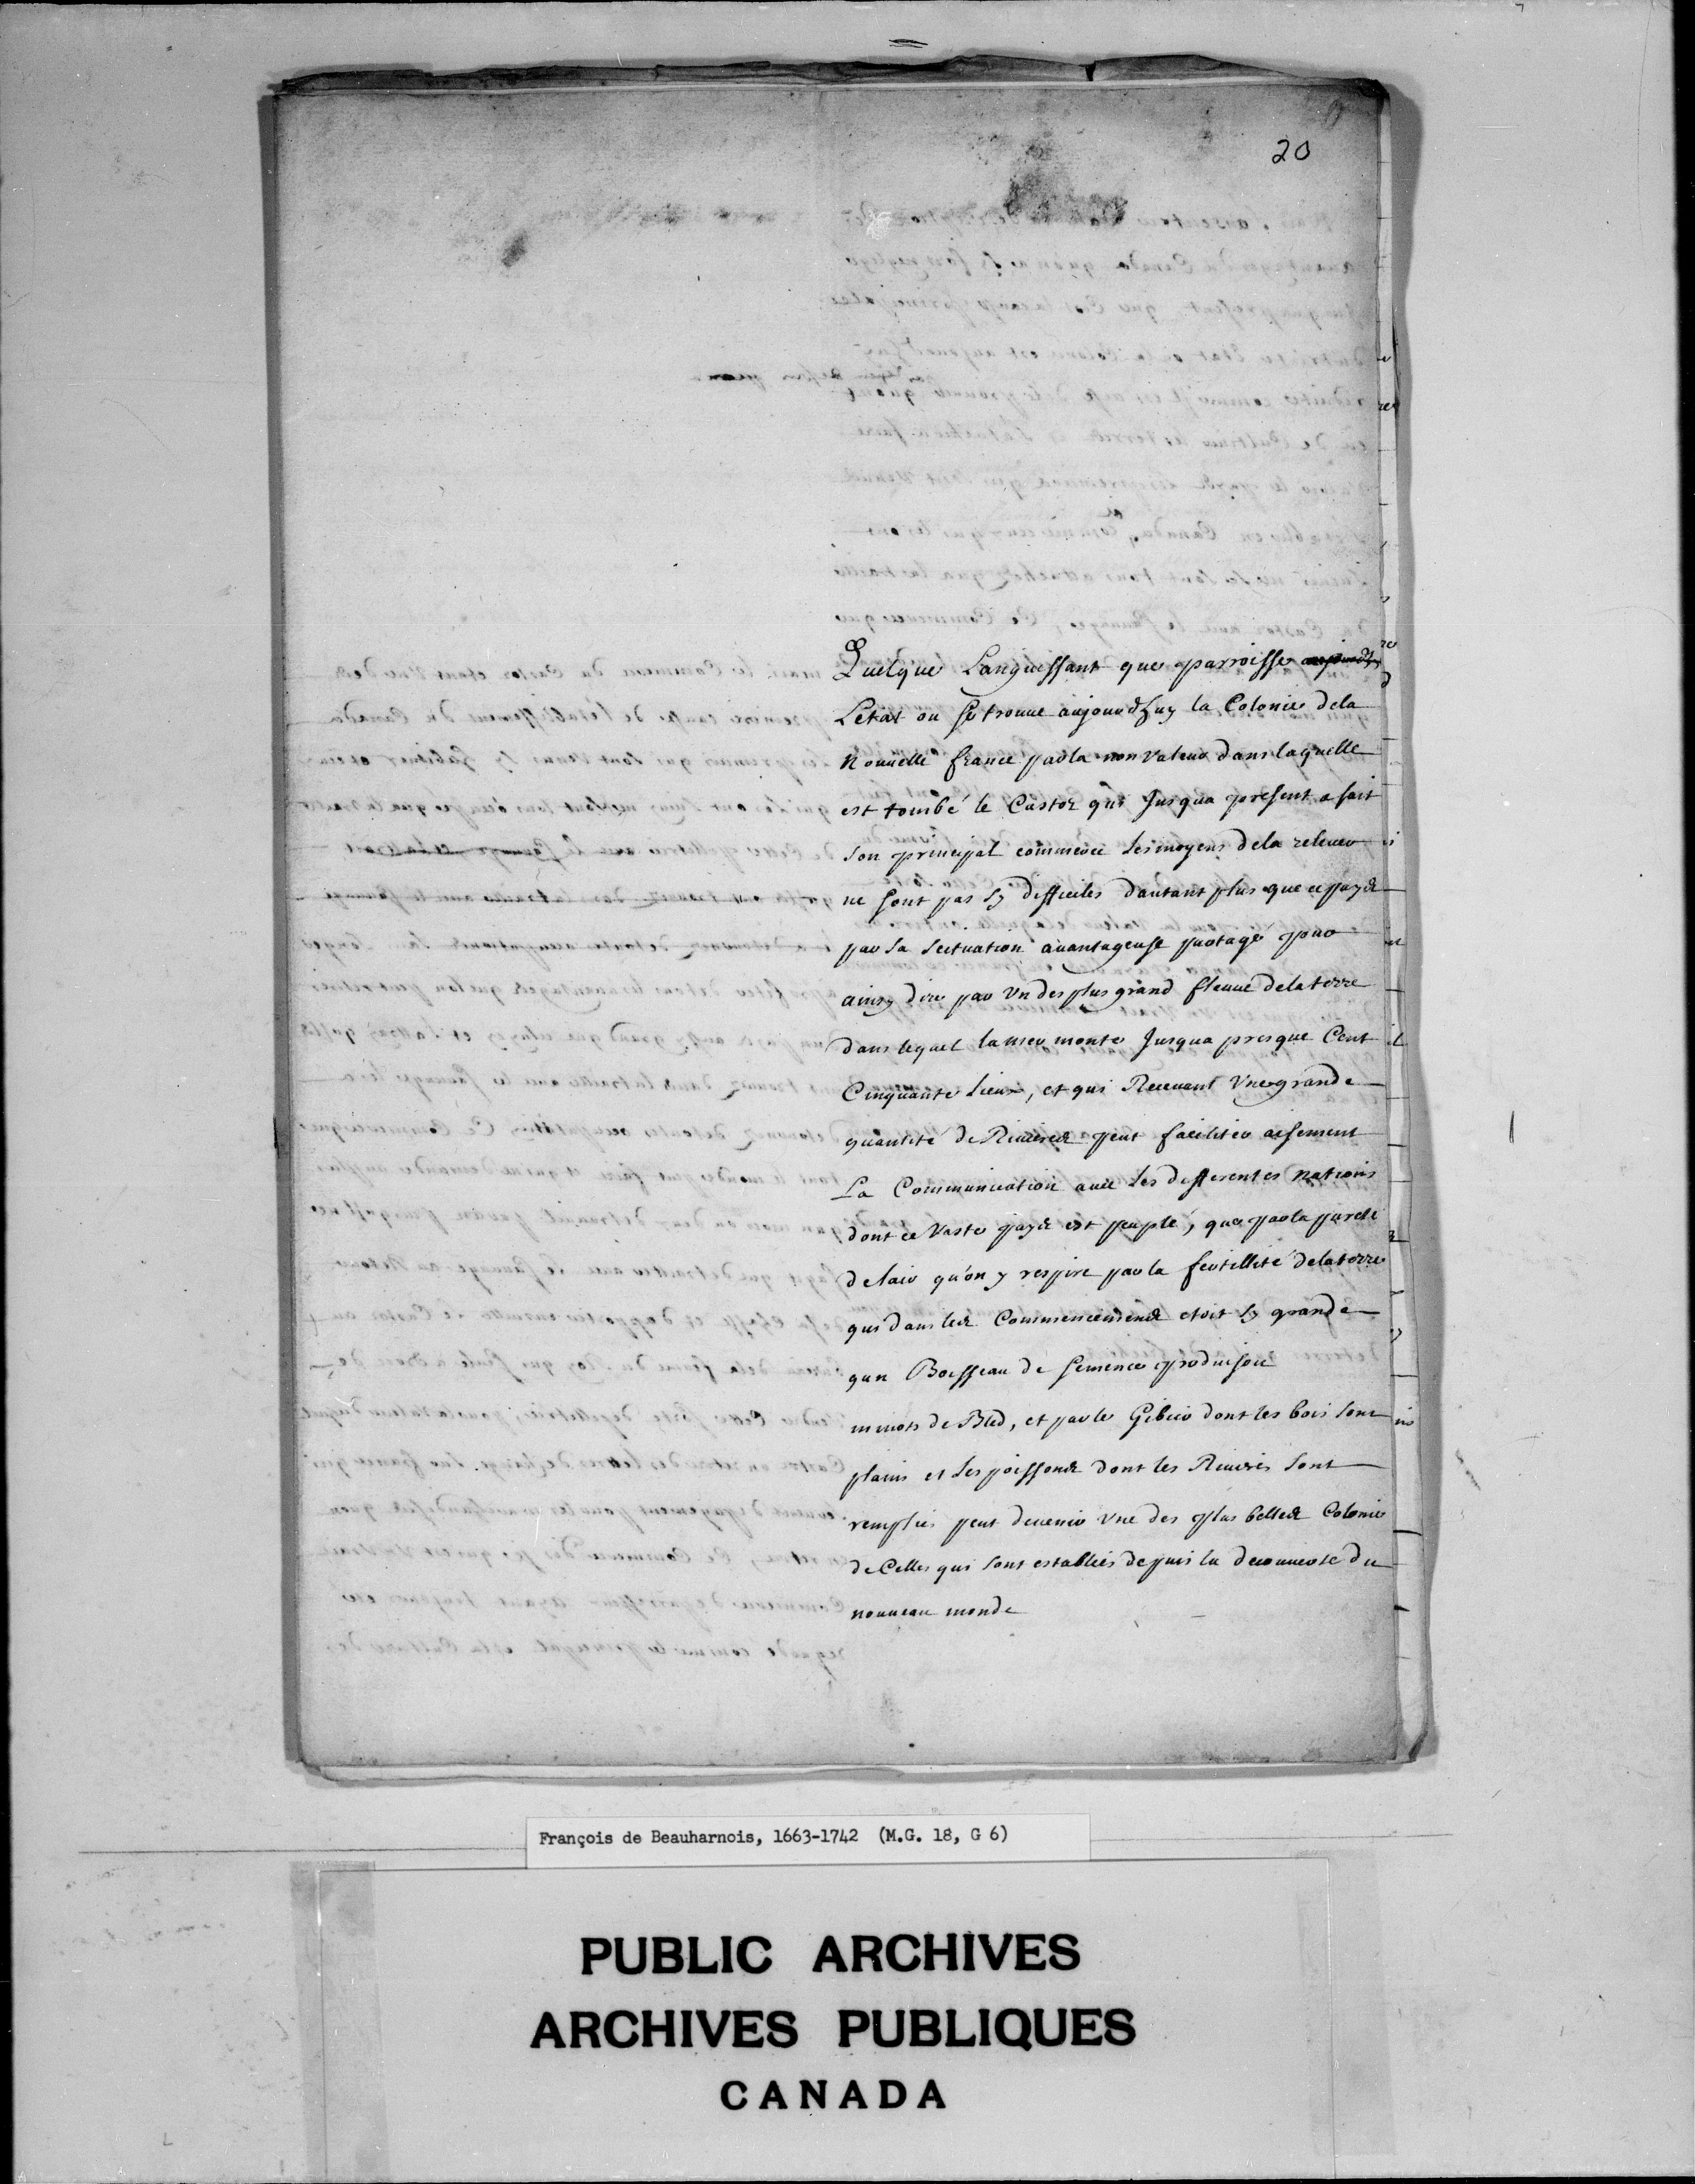 20
Quelque Languissant que parroisse
L'etat ou se trouve aujourd'huy la Colonie dela
Nouvelle france par la non valeur dans laquelle
est tombé le Castor qui Jusqua present a fait
son principal commerce les moyens dela relever
ne sont pas sy difficiles dautant plus que ce pays
par sa scituation avantageuse partagé pour
ainsy dire par Un des plus grand fleuve dela terre
dans lequel la mer monte Jusqua presque Cent
Cinquante lieux, et qui Recevant Une grande
quantité de Rivieres peut faciliter aisement
La Communication avec les differentes Nations
dont ce Vaste pays est peuplé, que par la pureté
de lair qu'on y respire par la fertillité dela terre
qui dans les Commencemens etoit sy grande
qun Boisseau de semence produisoit
minots de Bled, et par le Gibier dont les bois sont
plains et les poissons dont les Rivieres sont
remplies peut devenir Une des plus belles Colonies
de Celles qui sont establies depuis la decouverte du
nouveau monde
François de Beauharnois, 1663-1742 (M.G. 18, G 6)
PUBLIC ARCHIVES
ARCHIVES PUBLIQUES
CANADA